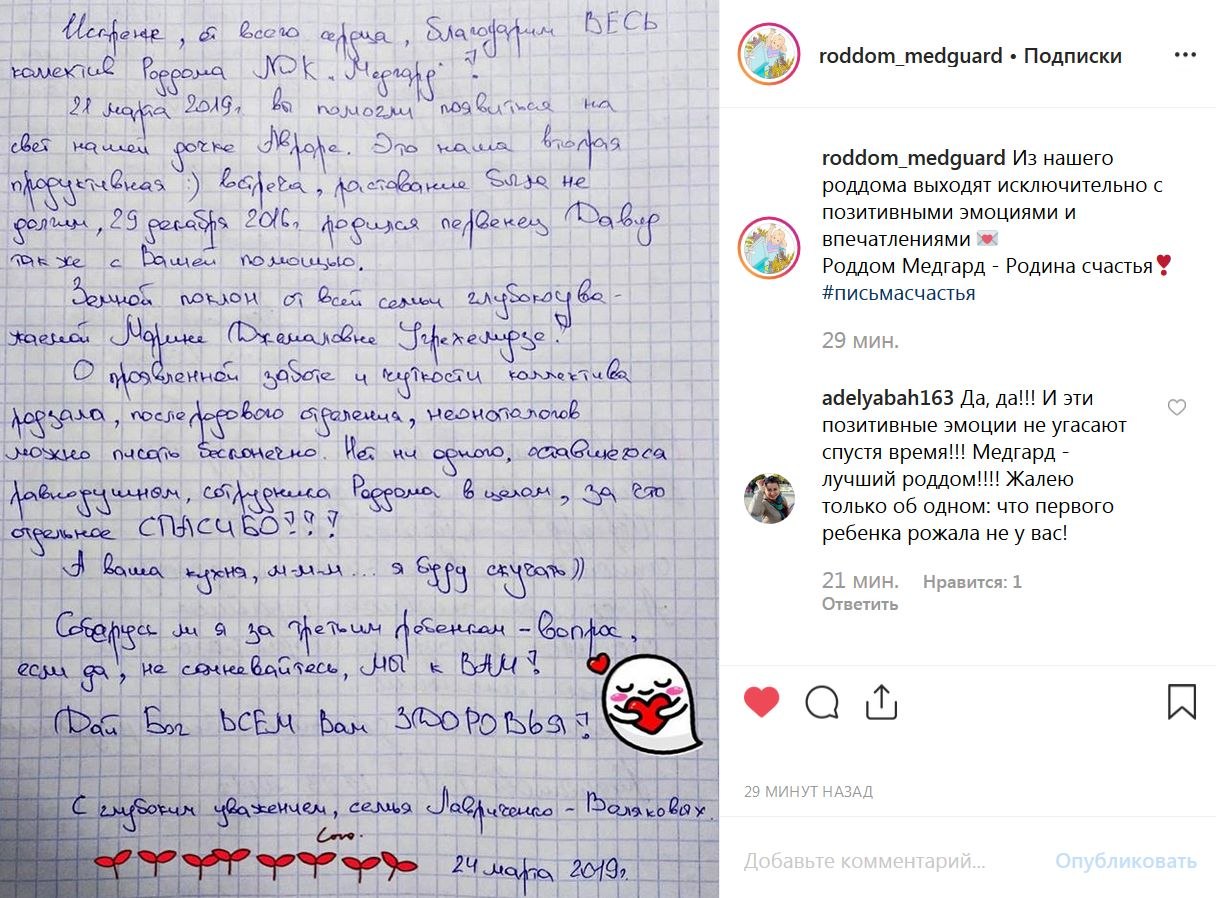 Искрене, от всего сердца, благодарим ВЕСЬ
коллектив Роддома ЛДК "Медгард"!
21 марта 2019г. вы помогли появиться на
свет нашей дочке Авроре. Это наша вторая
продуктивная :) встреча, раставание было не
долгим, 29 декабря 2016г. родился первенец Давид
также с Вашей помощью.
Земной поклон от всей семьи глубокоува-
жаемой Марине Джемаловне Угрехелидзе!
О проявленной заботе и чуткости коллектива
родзала, послеродового отделения, неонатологов
можно писать бесконечно. Нет ни одного, оставшегося
равнодушном, сотрудника Роддома в целом, за что
отдельное СПАСИБО!!!
А ваша кухня, м-м-м... я буду скучать))
Соберусь ли я за третьим ребенком - вопрос,
если да, не сомневайтесь, МЫ к ВАМ!
Дай Бог ВСЕМ Вам ЗДОРОВЬЯ!
С глубоким уважением, семья Лавриченко - Валяковых.
Love.
24 марта 2019г.
roddom_medguard • Подписки
roddom_medguard Из нашего
роддома выходят исключительно с
позитивными эмоциями и
впечатлениями 💌
Роддом Медгард - Родина счастья❣
#письмасчастья
29 мин.
adelyabah163 Да, да!!! И эти
позитивные эмоции не угасают
спустя время!!! Медгард -
лучший роддом!!!! Жалею
только об одном: что первого
ребенка рожала не у вас!
21 мин. Нравится: 1
Ответить
29 МИНУТ НАЗАД
Добавьте комментарий... Опубликовать